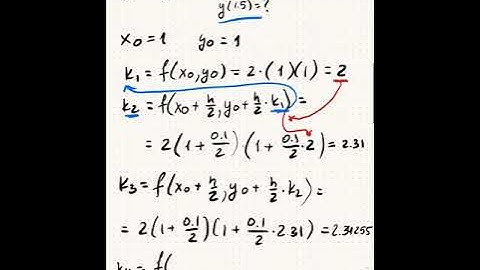 y(1.5)=?
x₀=1 y₀=1
k₁=f(x₀,y₀)=2·(1)(1)=2
k₂=f(x₀+h/2,y₀+h/2·k₁)=
=2(1+0.1/2)(1+0.1/2·2)=2.31
k₃=f(x₀+h/2,y₀+h/2·k₂)=
=2(1+0.1/2)(1+0.1/2·2.31)=2.34255
k₄=f(